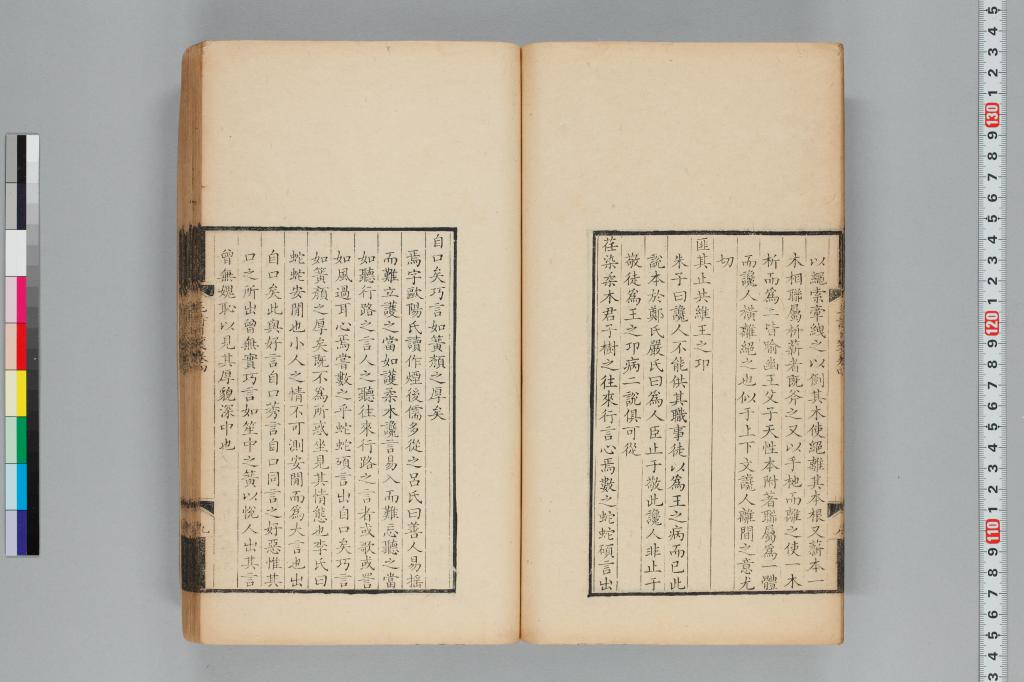 以繩索牽絏之以倒其木使絕離其本根又薪本一
木相聯屬析薪者旣斧之又以手杝而離之使一木
析而爲二皆喻幽王父子天性本附著聯屬爲一體
而讒人橫離絕之也似于上下文讒人離間之意尤
切
匪其止共維王之卭
朱子曰讒人不能供其職事徒以爲王之病而已此
說本於鄭氏嚴氏曰爲人臣止于敬此讒人非止于
敬徒爲王之卭病二說俱可從
荏染柔木君子樹之往來行言心焉數之蛇蛇碩言出
自口矣巧言如簧顏之厚矣
焉字歐陽氏讀作煙後儒多從之呂氏曰善人易搖
而難立護之當如護柔木讒言易入而難忘聽之當
如聽行路之言人之聽往來行路之言者或歌或詈
如風過耳心焉嘗數之乎蛇蛇碩言出自口矣巧言
如簧顏之厚矣旣不爲所惑坐見其情態也李氏曰
蛇蛇安閒也小人之情不可測安閒而爲大言也出
自口矣此與好言自口莠言自口同言之好惡惟其
口之所出曾無實巧言如笙中之簧以悅人出其言
曾無媿恥以見其厚貌深中也